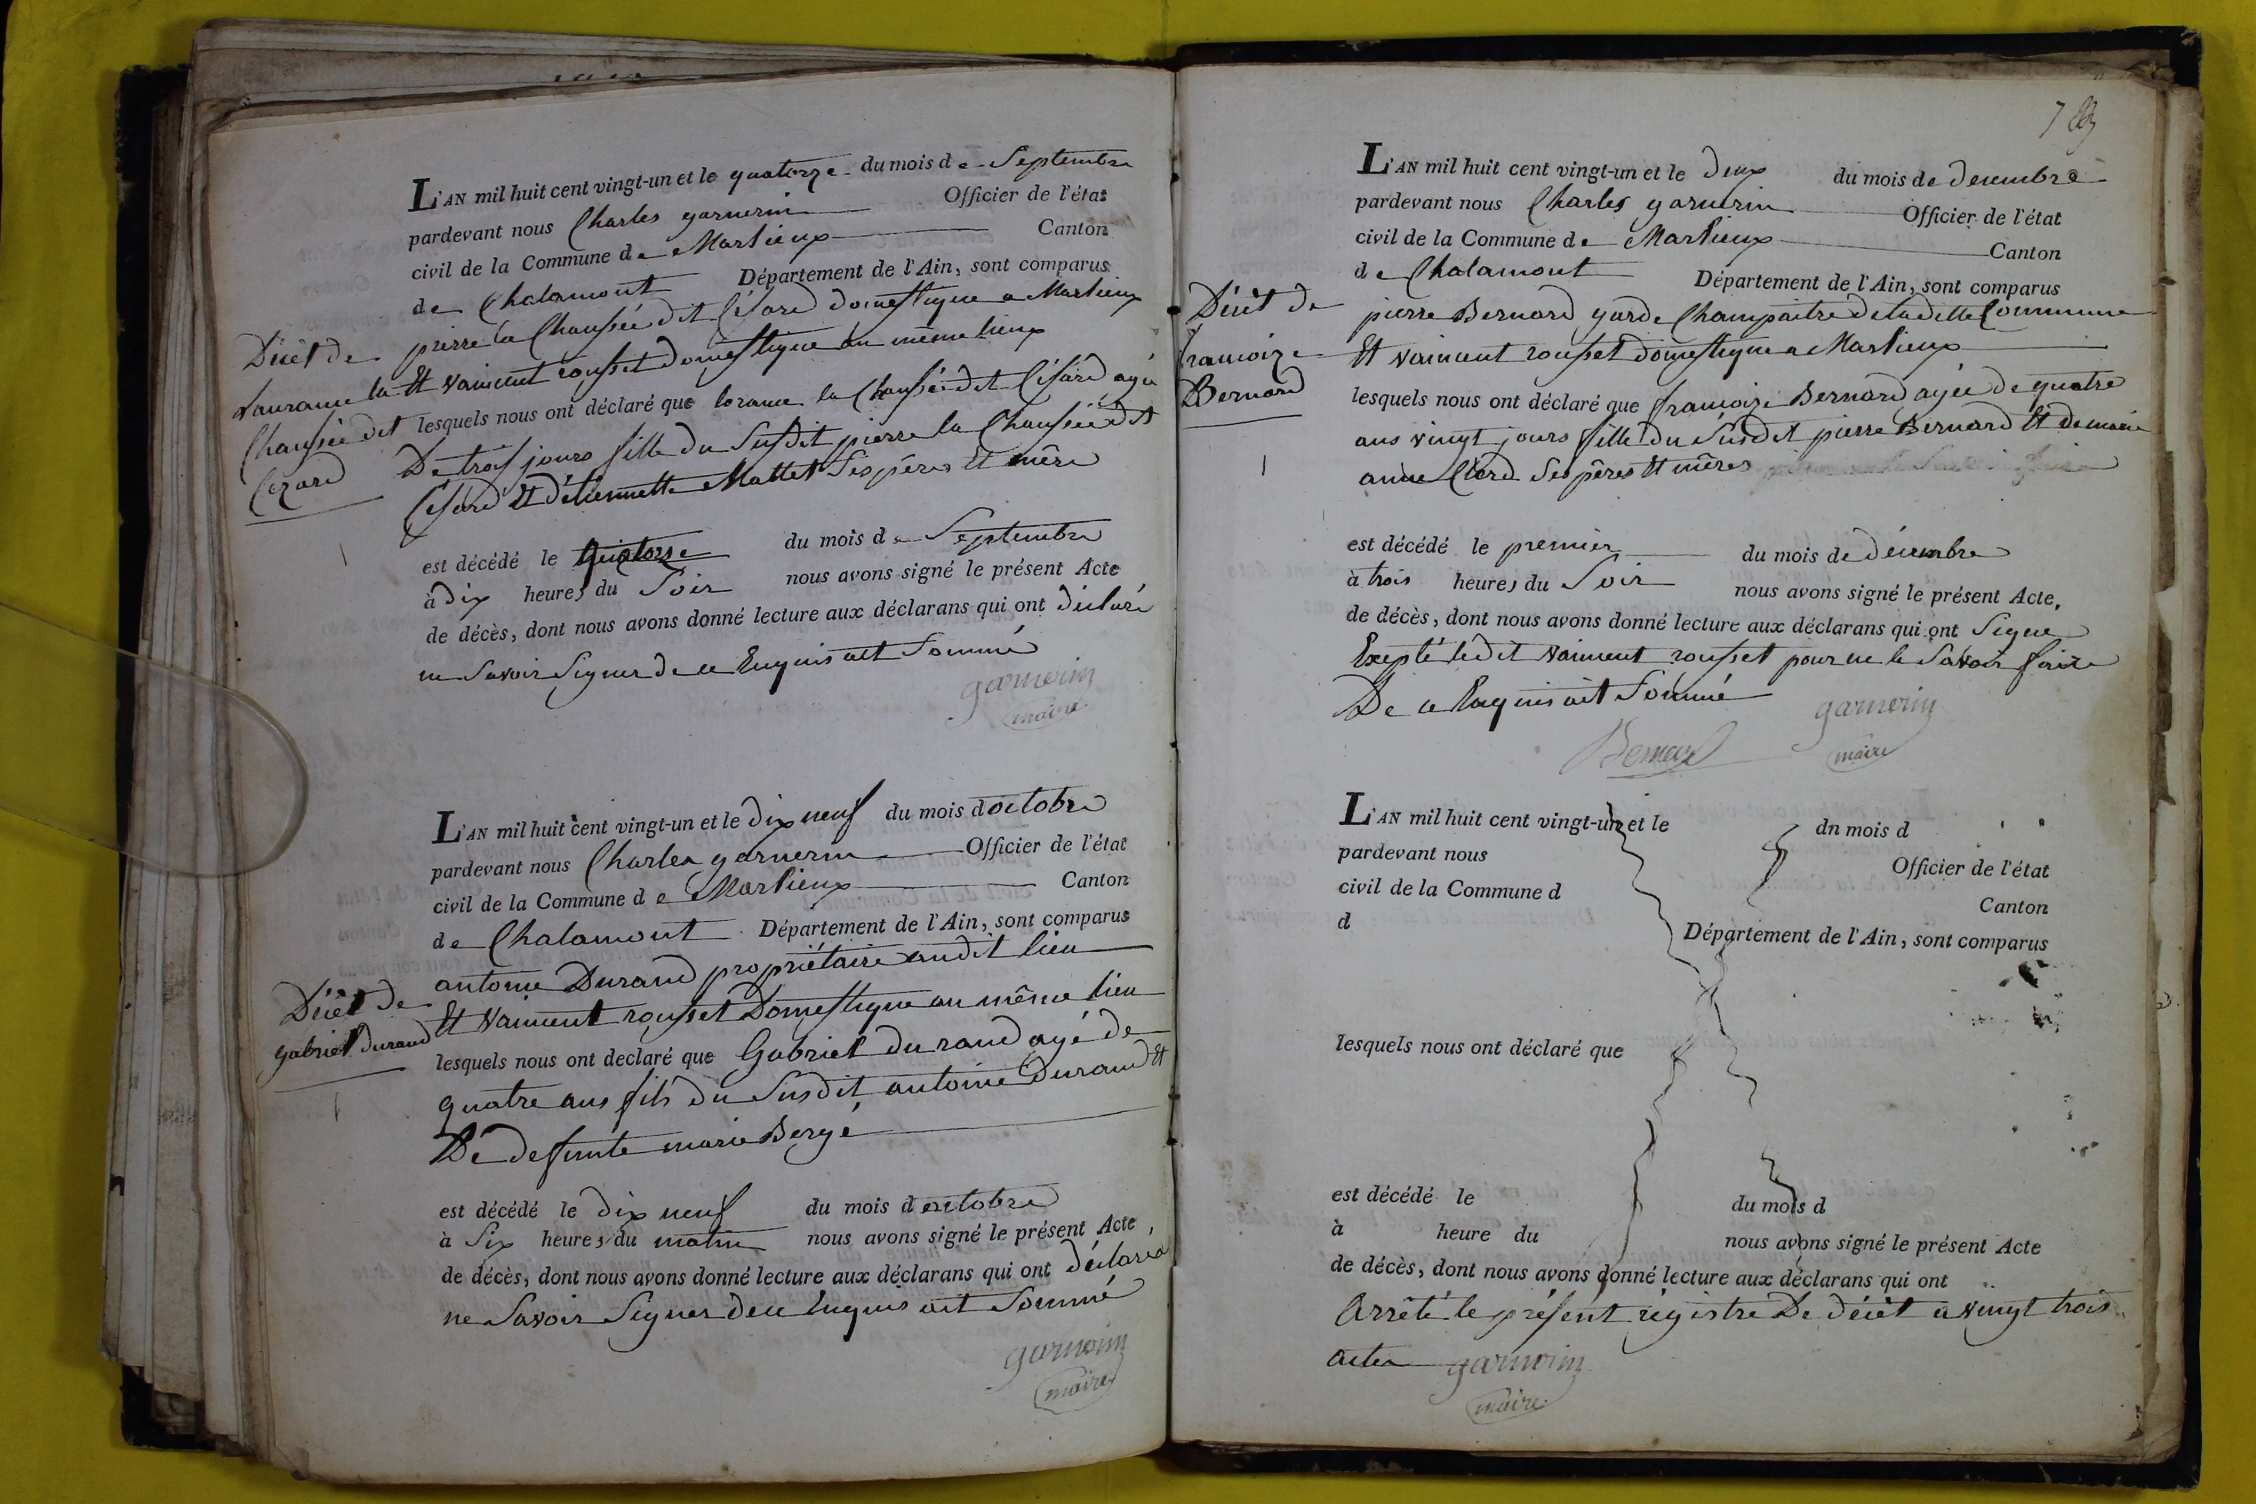 L'AN mil huit cent vingt-un et le quatorze du mois de Septembre
pardevant nous Charles garnerin Officier de l'état
civil de la Commune de Marlieux Canton
de Chalamont Département de l'Ain, sont comparus
pierre la Chaussée dit Césard domestique a Marlieux
Et vaincent rousset domestique au même lieux
lesquels nous ont déclaré que lorance la Chaussée dit Césard agée
De trois jours fille du Susdit pierre la Chaussée dit
Césard Et d'étiennette Mattet Ses pères Et mère
Décèt de
Laurance la
Chausée dit
Cezard
1
est décédé le Quatorse du mois de Septembre
à dix heures du Soir nous avons signé le présent Acte
de décès, dont nous avons donné lecture aux déclarans qui ont déclaré
ne Savoir Signer de ce Enquis ait Sommé
garnerin
maire
L'AN mil huit cent vingt-un et le dix neuf du mois d octobre
pardevant nous Charles garnerin Officier de l'état
civil de la Commune de Marlieux Canton
de Chalamont Département de l'Ain, sont comparus
antoine Durand propriétaire audit lieu
Et vaincent rousset Domestique au même lieu
lesquels nous ont declaré que Gabriel durand agé de
quatre ans fils du Susdit antoine Durand Et
De defunte marie Bergé
Décèt de
gabriel durand
1
est décédé le dix neuf du mois d octobre
à Six heures du matin nous avons signé le présent Acte,
de décès, dont nous avons donné lecture aux déclarans qui ont déclaré
ne Savoir Signer de ce Enquis ait Sommé
garnerin
maire
7
L'AN mil huit cent vingt-un et le deux du mois de decembre
pardevant nous Charles garnerin Officier de l'état
civil de la Commune de Marlieux Canton
de Chalamont Département de l'Ain, sont comparus
pierre Bernard garde Champaitre de ladite Commune
Et vaincent rousset domestique a Marlieux
lesquels nous ont déclaré que françoize Bernard agée de quatre
ans vingt jours fille du Susdit pierre Bernard Et de marie
anne Clerd Ses pères Et mères
Décèt de
francoize
Bernard
1
est décédé le premier du mois de décembre
à trois heures du Soir nous avons signé le présent Acte,
de décès, dont nous avons donné lecture aux déclarans qui ont Signé
Exepté ledit vaincent rousset pour ne le Savoir faire
De ce Enquis ait Sommé
garnerin
Bernard maire
L'AN mil huit cent vingt-un et le dn mois d
pardevant nous Officier de l'état
civil de la Commune d Canton
d Département de l'Ain, sont comparus
lesquels nous ont déclaré que
est décédé le du mois d
à heure du nous avons signé le présent Acte
de décès, dont nous avons donné lecture aux déclarans qui ont
Arrêté le présent régistre De décèt a vingt trois
actes garnerin
maire